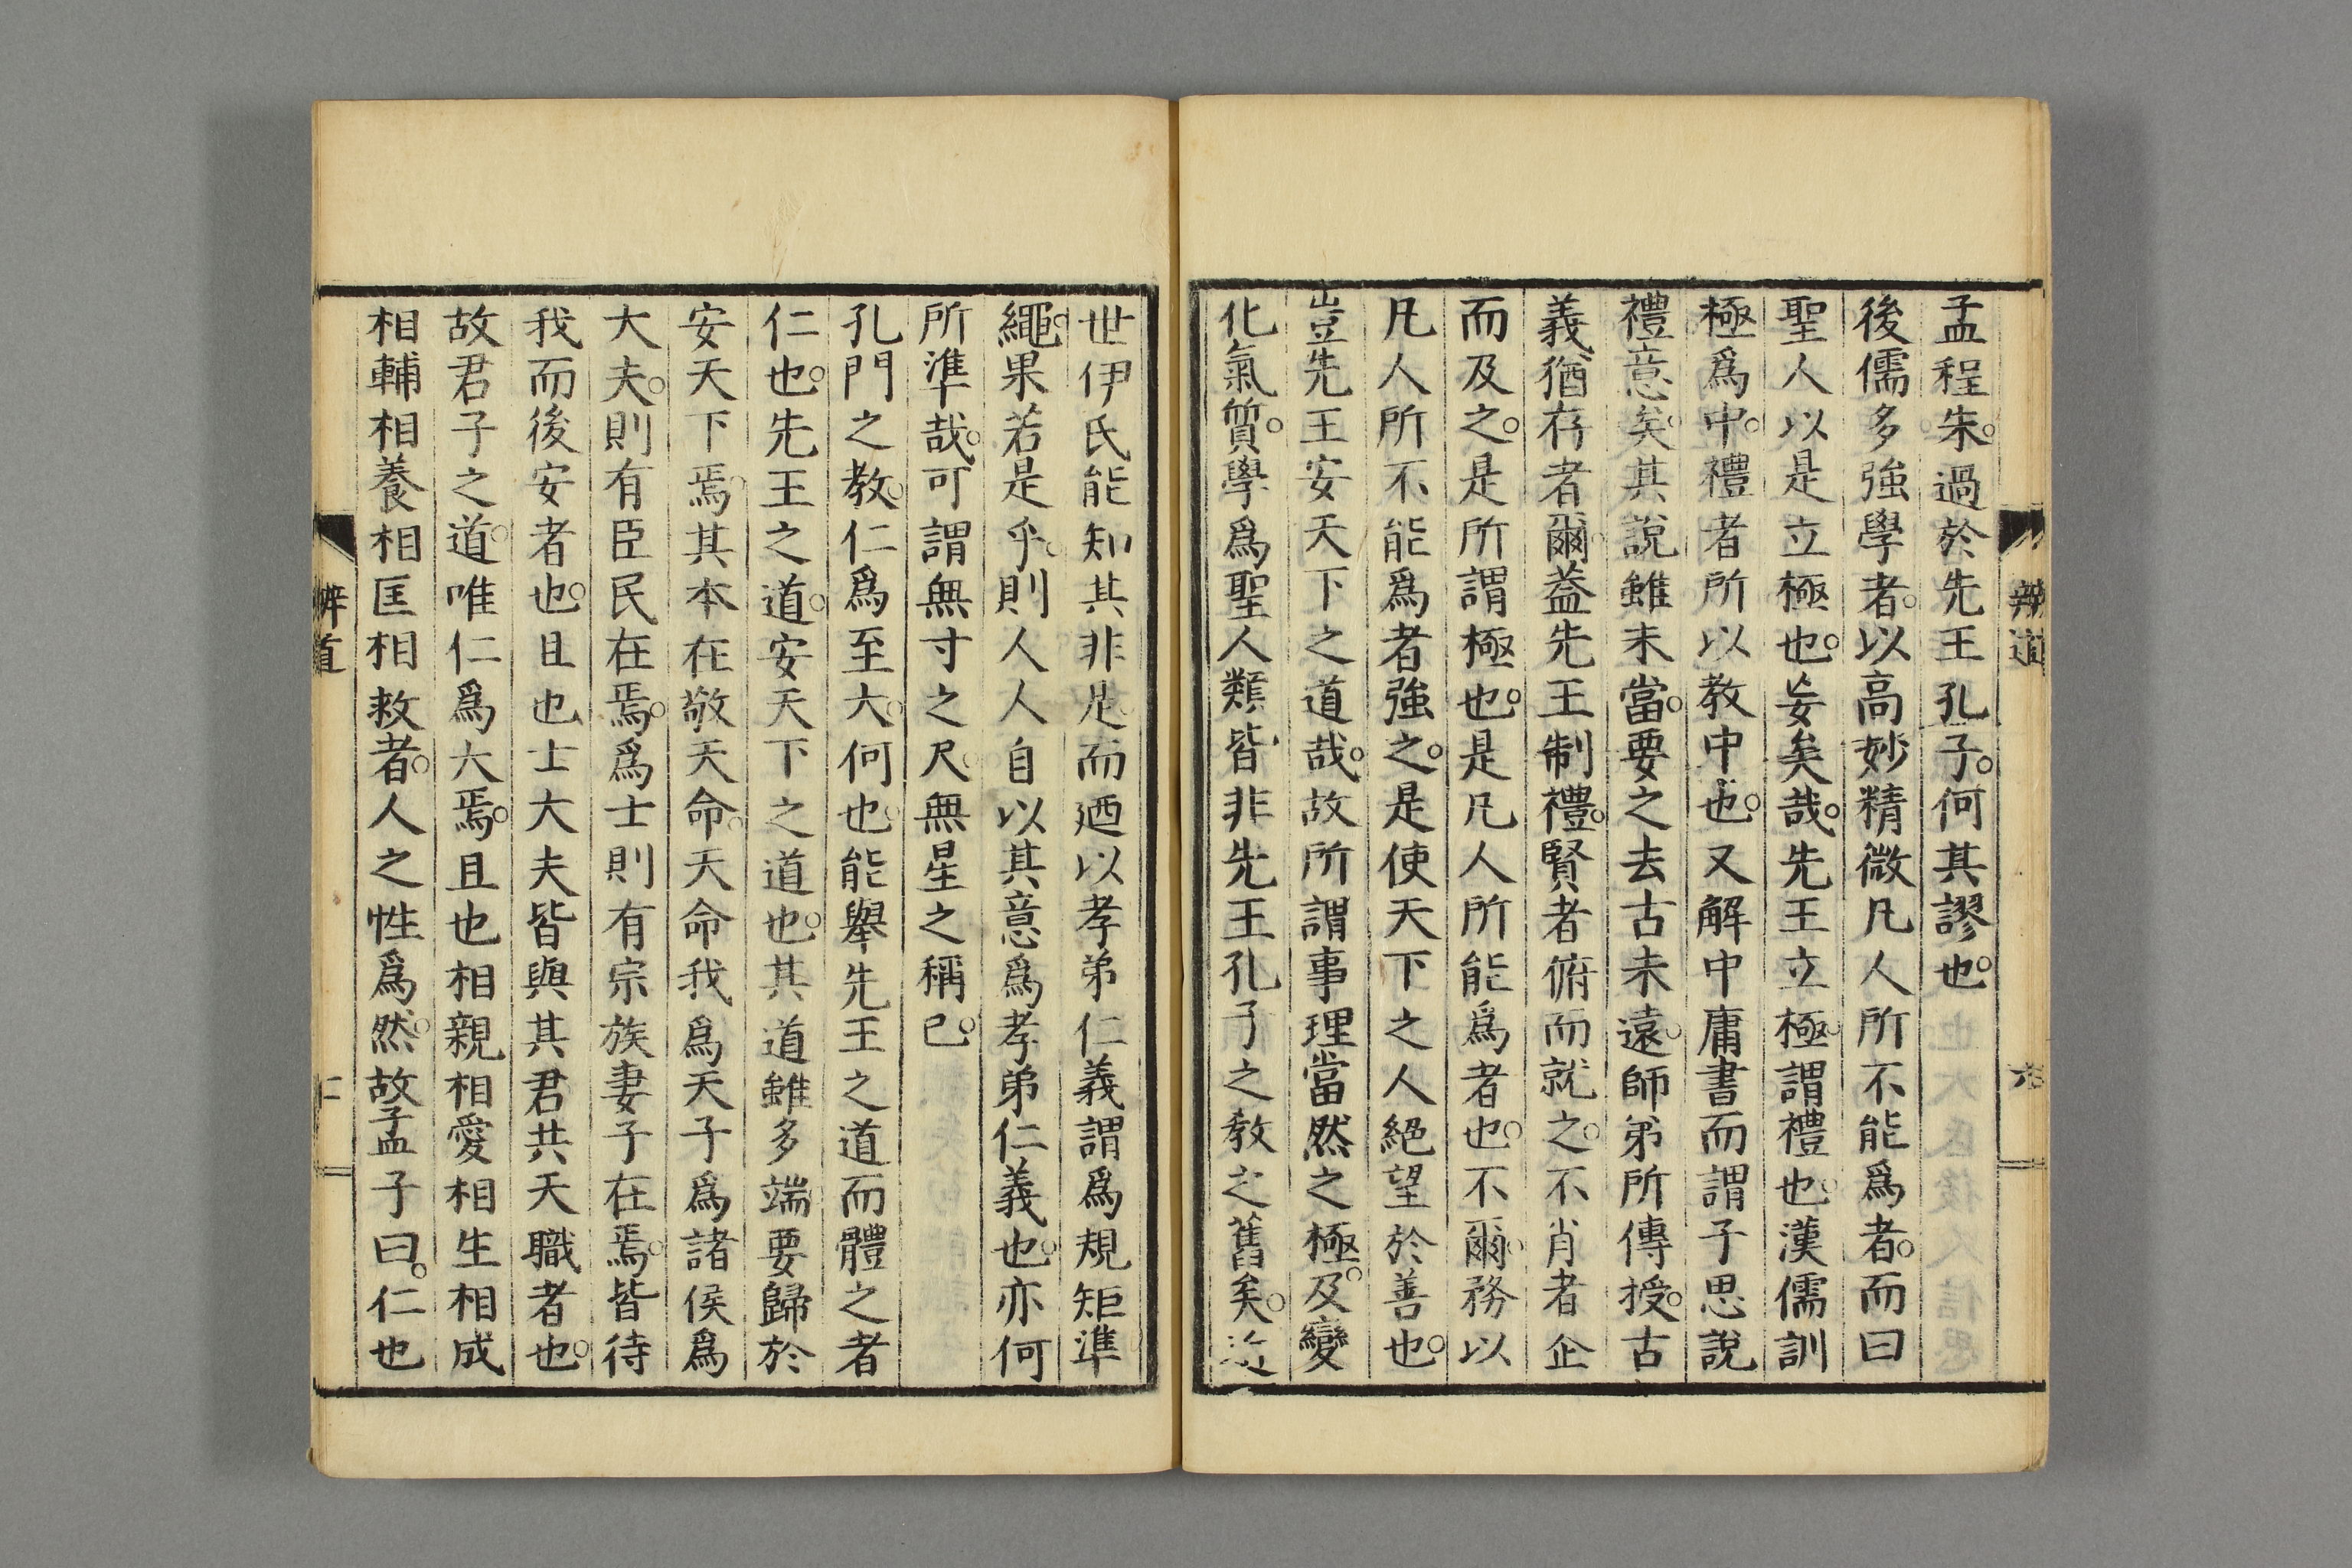 辨道
六
孟程朱。過於先王孔子。何其謬也。
後儒多強學者。以高妙精微凡人所不能爲者。而曰
聖人以是立極也。妄矣哉。先王立極。謂禮也。漢儒訓
極爲中。禮者所以教中也。又解中庸書而謂子思說
禮意矣。其說雖未當。要之去古未遠。師弟所傳授。古
義猶存者爾。蓋先王制禮。賢者俯而就之。不肖者企
而及之。是所謂極也。是凡人所能爲者也。不爾。務以
凡人所不能爲者強之。是使天下之人絕望於善也。
豈先王安天下之道哉。故所謂事理當然之極。及變
化氣質。學爲聖人類。皆非先王孔子之教之舊矣。近
世伊氏能知其非是。而迺以孝弟仁義謂爲規矩準
繩。果若是乎。則人人自以其意爲孝弟仁義也。亦何
所準哉。可謂無寸之尺。無星之稱已。
孔門之教。仁爲至大。何也。能舉先王之道而體之者
仁也。先王之道。安天下之道也。其道雖多端。要歸於
安天下焉。其本在敬天命。天命我爲天子爲諸侯爲
大夫。則有臣民在焉。爲士則有宗族妻子在焉。皆待
我而後安者也。且也士大夫皆與其君共天職者也。
故君子之道。唯仁爲大焉。且也相親相愛相生相成
相輔相養相匡相救者。人之性爲然。故孟子曰。仁也
辨道